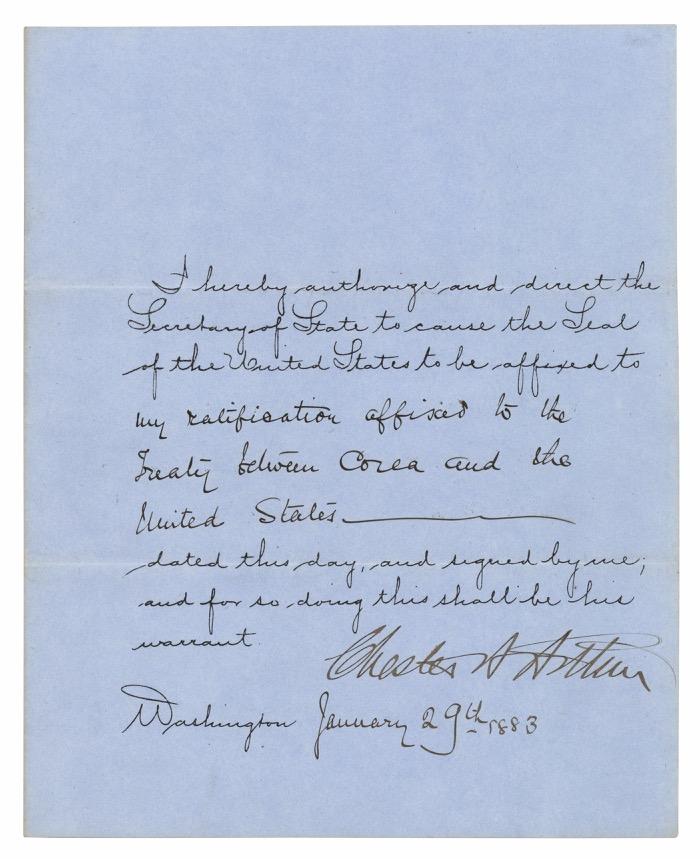 I hereby authorize and direct the
Secretary of State to cause the Seal
of the United States to be affixed to
my ratification affixed to the
Treaty between Corea and the
United States
dated this day, and signed by me;
and for so doing this shall be his
warrant.
Chester A Arthur
Washington January 29th 1883